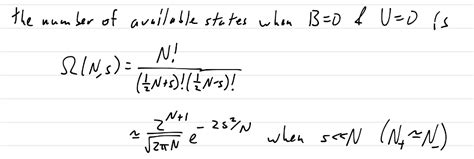 the number of available states when B=0 & U=0 is
Ω(N,s) = N! / (½N+s)!(½N-s)!
≃ 2^{N+1} / √2πN e^{-2s²/N} when s≪N (N₊≃N₋)